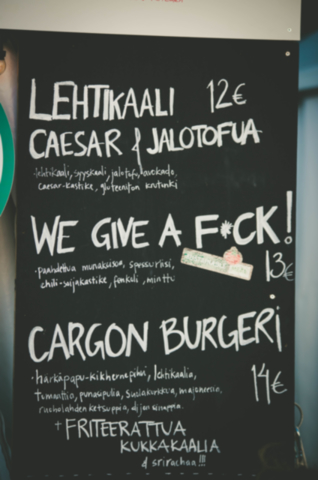 LEHTIKAALI 12€
CAESAR & JALOTOFUA
·lehtikaali, syyskaali, jalotofu, avokado,
caesar-kastike, gluteeniton krutonki
WE GIVE A F*CK!
·paahdettua munakoisoa,
chili-soijakastike, fenkoli, minttu
13€
CARGON BURGERi
·härkäpapu-kikhernepihvi, lehtikaalia,
tomaattia, punasipulia, suolakurkkua, majoneesia,
ruoholahden ketsuppia, sinappia
14€
+FRITEERATTUA
KUKKAKAALIA
& srirachaa!!!